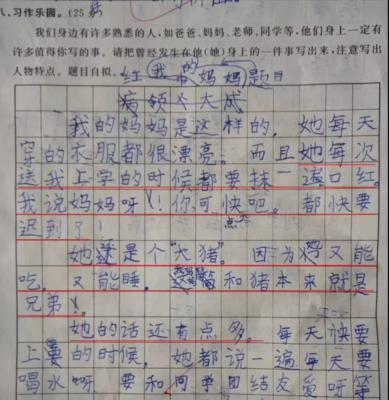 八、习作乐园。(25分)
我们身边有许多熟悉的人,如爸爸、妈妈、老师、同学等,他们身上一定有
许多值得你写的事。请把曾经发生在他(她)身上的一件事写出来,注意写出
人物特点。题目自拟。
我的妈妈 题目
大成
我的妈妈是这样的,她每天
穿的衣服都很漂亮。而且她每次
送我上学的时候都要抹一遍口红。
我说妈妈呀!你可快点吧。都快要
迟到了!
她还是个“大猪”。因为她又能
吃,又能睡,和猪本来就是
兄弟!
她的话还有点多。每天快要
上学的时候,她都说一遍每天要
喝水呀,要和同学团结友爱呀等